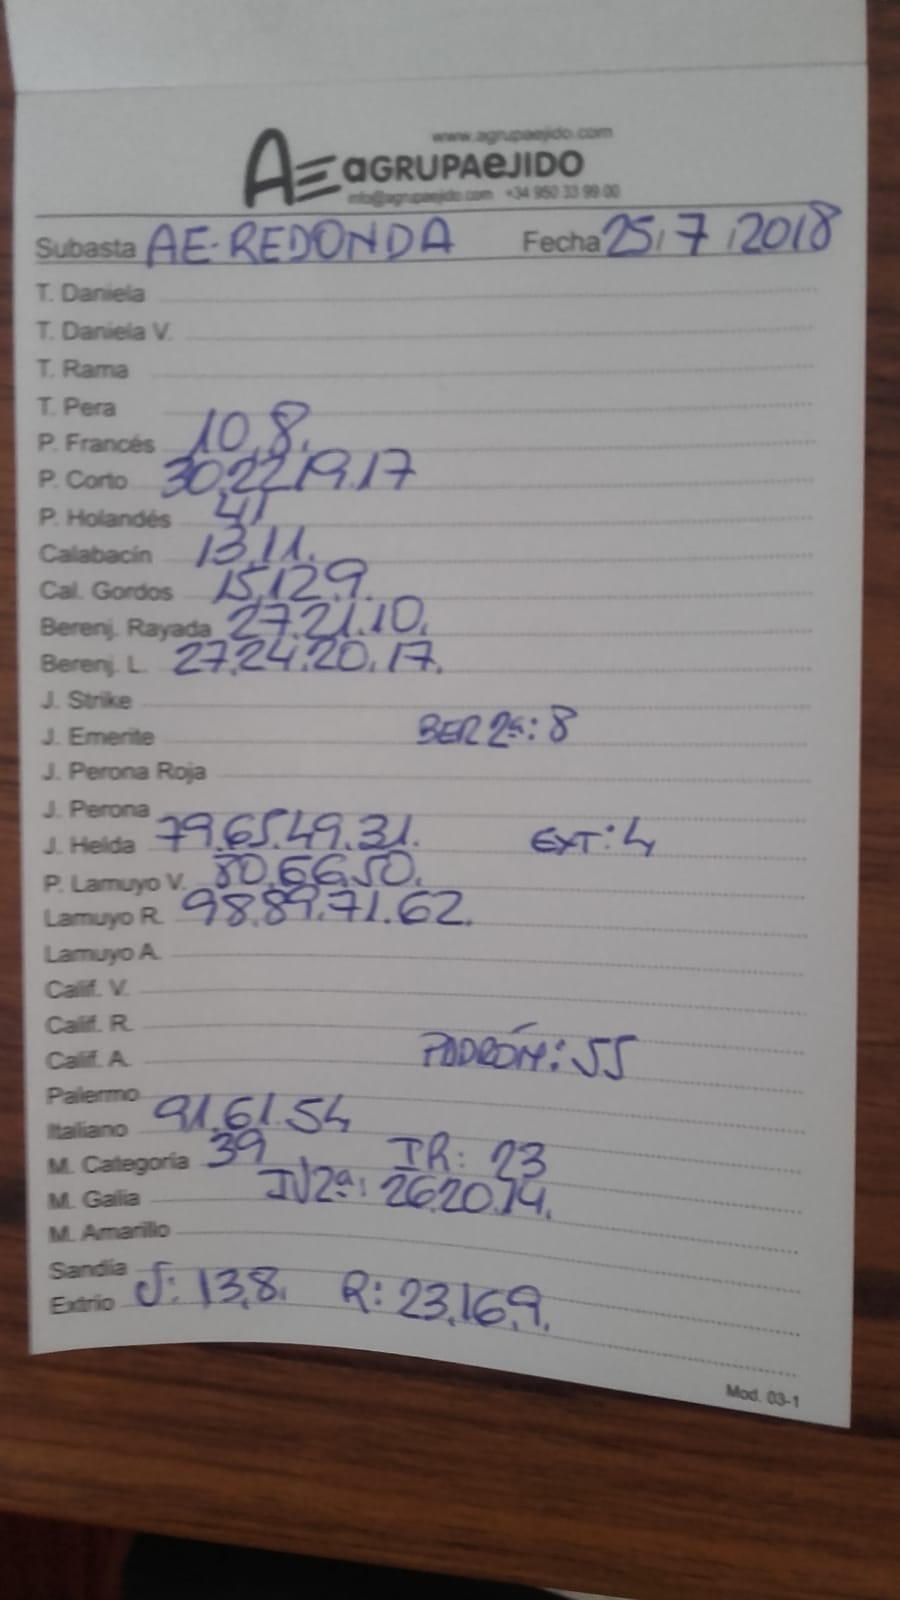 www.agrupaejido.com
AE aGRUPAeJIDO
info@agrupaejido.com +34 950 33 99 00
Subasta AE-REDONDA Fecha 25/7/2018
T. Daniela
T. Daniela V.
T. Rama
T. Pera
P. Francés 10,8.
P. Corto 30,22,19.17
P. Holandés 41
Calabacín 13,11.
Cal. Gordos 15,12,9.
Berenj. Rayada 27.21.10.
Berenj. L. 27.24.20.17.
J. Strike
J. Emerite BER 2ª: 8
J. Perona Roja
J. Perona
J. Helda 79.65.49.31. EXT: 4
P. Lamuyo V. 80.66.50.
Lamuyo R. 98.89.71.62.
Lamuyo A.
Calif. V.
Calif. R.
Calif. A. PADRÓN: 55
Palermo
Italiano 91.61.54
M. Categoría 39 IR: 23
M. Galia IV2ª: 26.20.14.
M. Amarillo
Sandía
Extrio S: 13,8. R: 23,16,9.
Mod. 03-1